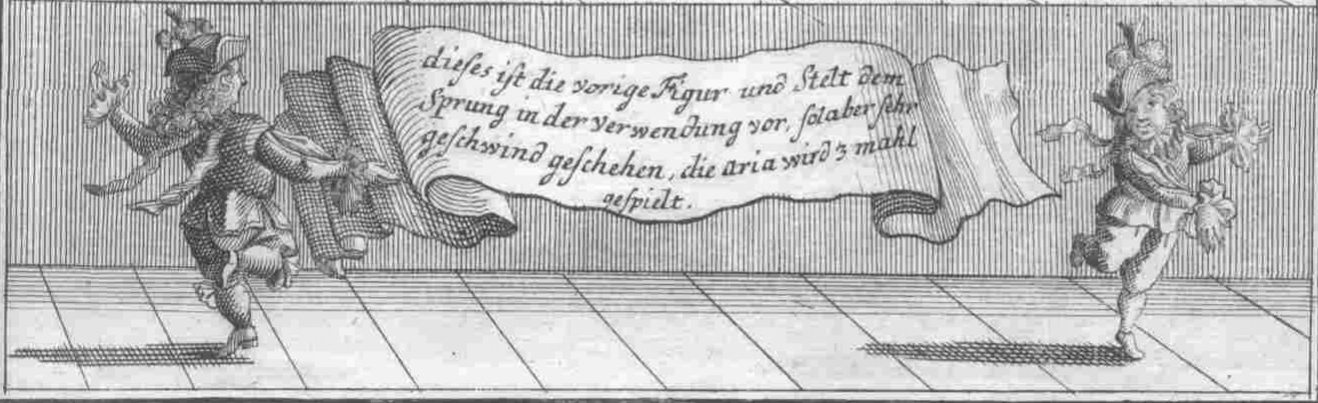 dieses ist die vorige Figur und Stelt dem
Sprung in der verwendung vor, sol aber sehr
geschwind geschehen, die aria wird 3 mahl
gespielt.